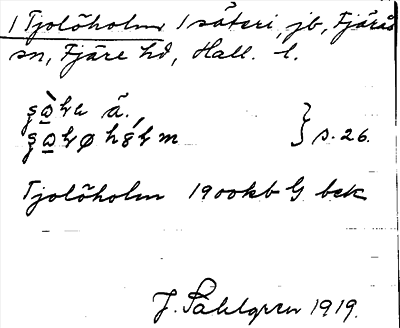 1 Tjolöholm 1 säteri, jb, Fjärås
sn, Fjäre hd, Hall. l.
ä.
} s. 26.
Tjolöholm 1900kb G bek
J. Sahlgren 1919.